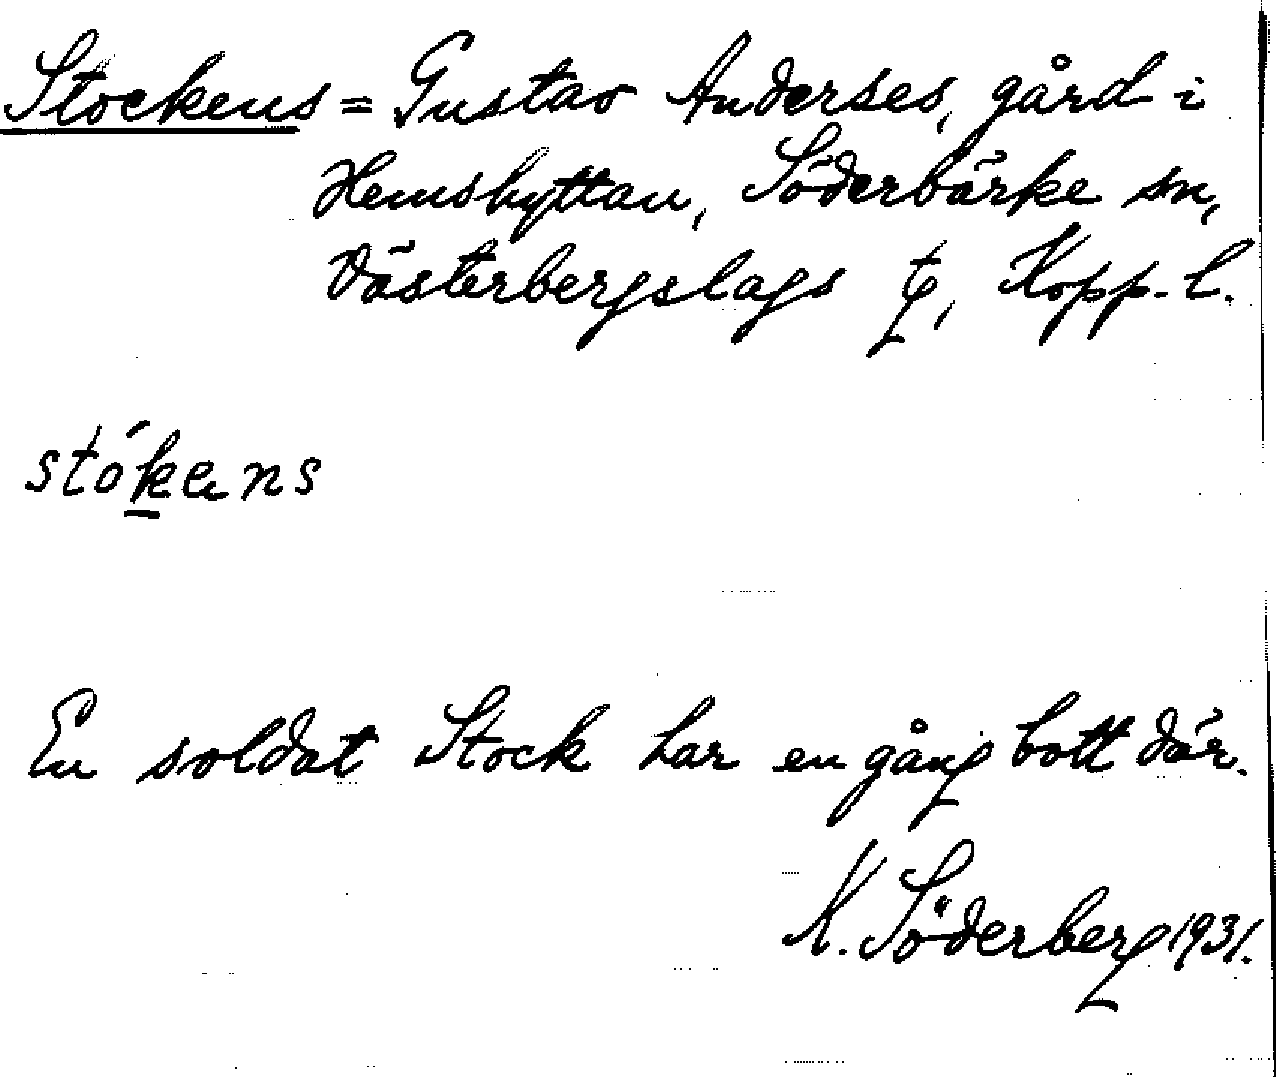 Stockens = Gustav Anderses, gård i
Hemshyttan, Söderbärke sn,
Västerbergslags tg, Kopp. l.
stókens
En soldat Stock har en gång bott där.
K. Söderberg 1931.